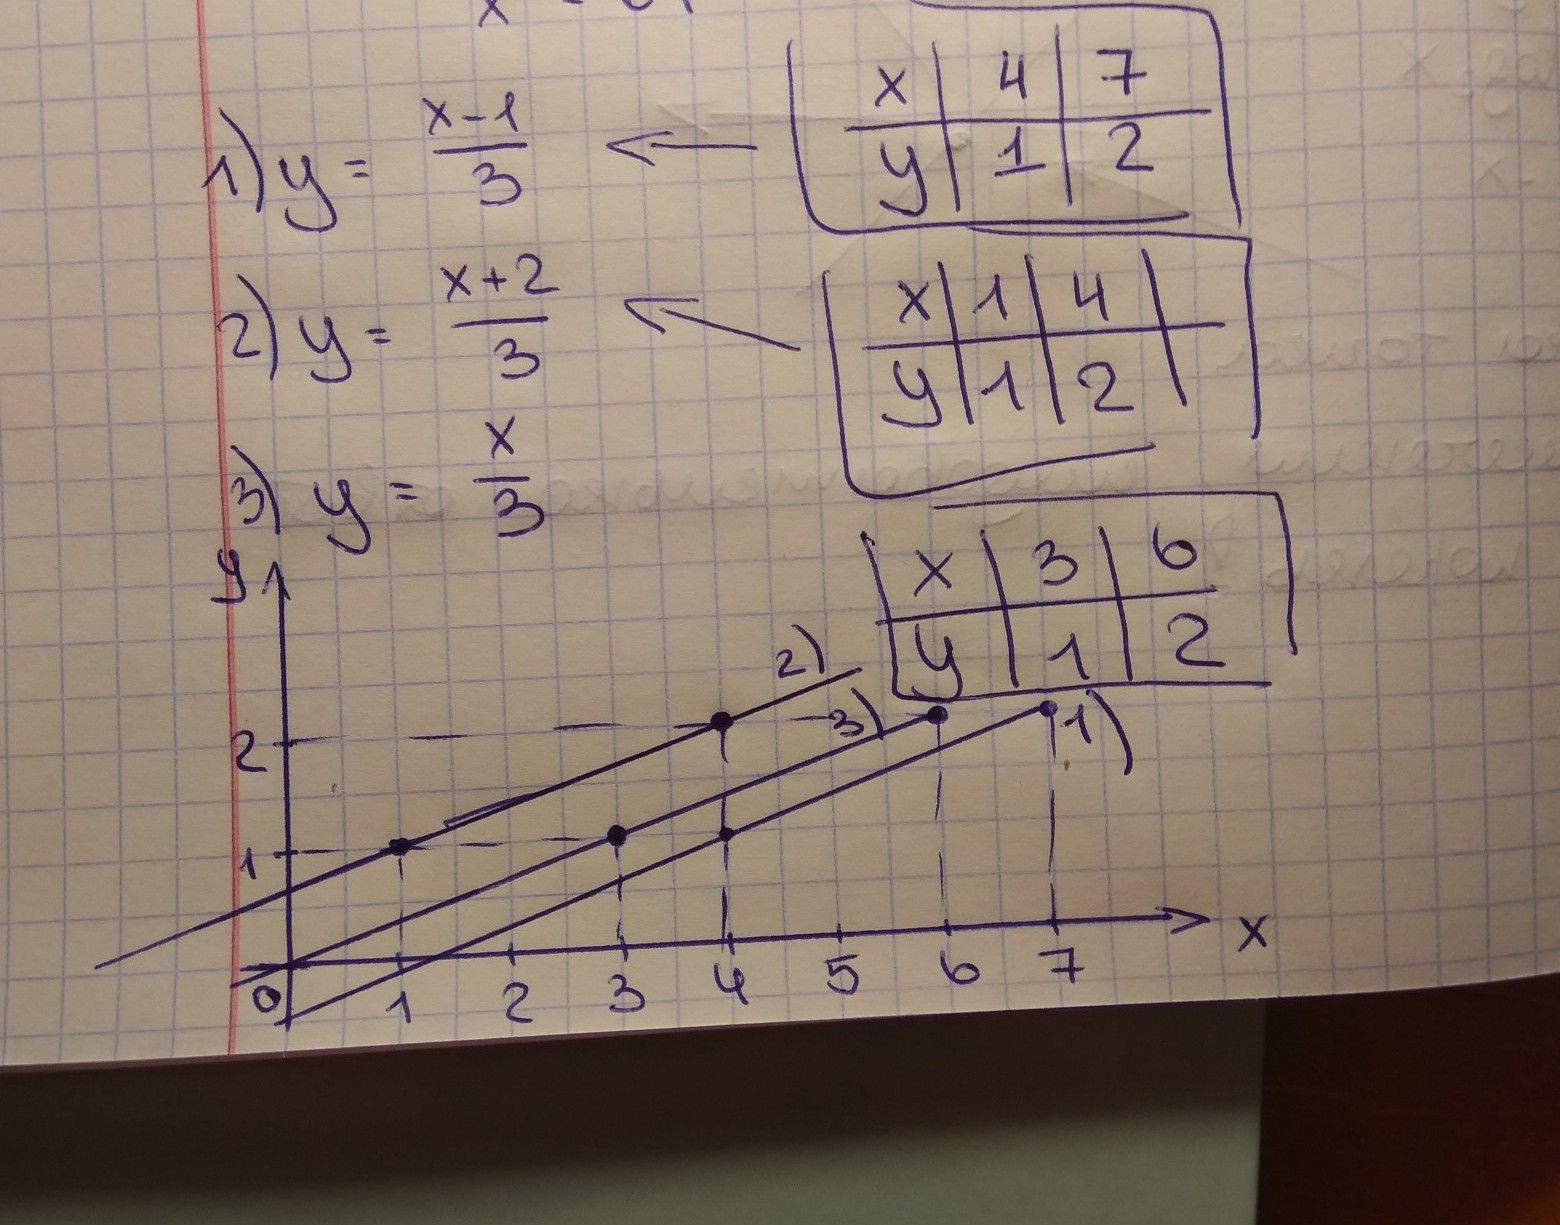 1) y = (x-1)/3 ←
x | 4 | 7
y | 1 | 2
2) y = (x+2)/3 ←
x | 1 | 4 |
y | 1 | 2 |
3) y = x/3
x | 3 | 6
y | 1 | 2
y
2)
3)
1)
2
1
x
0 1 2 3 4 5 6 7